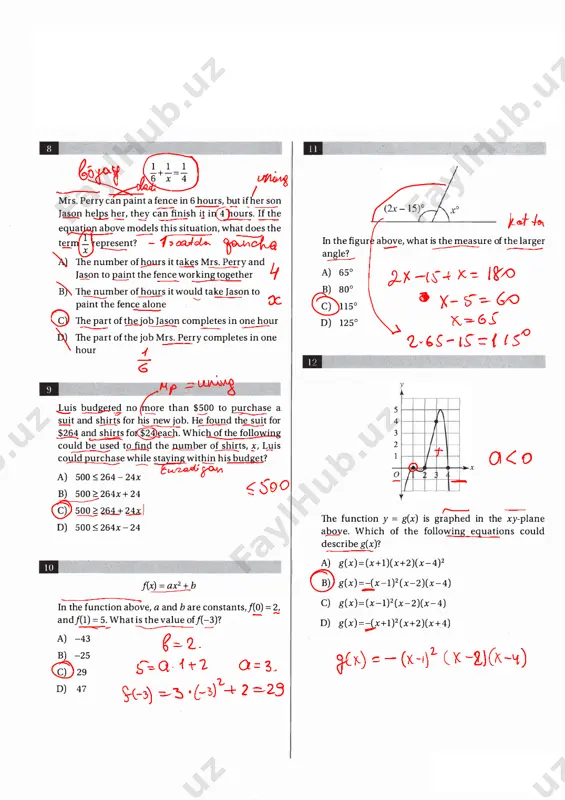 8
1/6 + 1/x = 1/4
Mrs. Perry can paint a fence in 6 hours, but if her son
Jason helps her, they can finish it in 4 hours. If the
equation above models this situation, what does the
term 1/x represent?
A) The number of hours it takes Mrs. Perry and
Jason to paint the fence working together
4
B) The number of hours it would take Jason to
paint the fence alone
x
C) The part of the job Jason completes in one hour
D) The part of the job Mrs. Perry completes in one
hour
1/6
9
Luis budgeted no more than $500 to purchase a
suit and shirts for his new job. He found the suit for
$264 and shirts for $24 each. Which of the following
could be used to find the number of shirts, x, Luis
could purchase while staying within his budget?
≤500
A) 500 ≤ 264 − 24x
B) 500 ≥ 264x + 24
C) 500 ≥ 264 + 24x
D) 500 ≤ 264x − 24
10
f(x) = ax² + b
In the function above, a and b are constants, f(0) = 2,
and f(1) = 5. What is the value of f(−3)?
A) −43
B) −25
C) 29
D) 47
b = 2.
5 = a·1+2 a = 3.
f(-3) = 3·(-3)² + 2 = 29
11
(2x − 15)° x°
In the figure above, what is the measure of the larger
angle?
A) 65°
B) 80°
C) 115°
D) 125°
2x-15+x = 180
x-5=60
x=65
2·65-15=115°
12
y
5
4
3
2
1
O 2 3 4 x
a<0
The function y = g(x) is graphed in the xy-plane
above. Which of the following equations could
describe g(x)?
A) g(x)=(x+1)(x+2)(x−4)²
B) g(x)=−(x−1)²(x−2)(x−4)
C) g(x)=(x+1)²(x−2)(x−4)
D) g(x)=−(x+1)²(x+2)(x+4)
g(x) = -(x-1)² (x-2)(x-4)
FaylHub.uz
FaylHub.uz